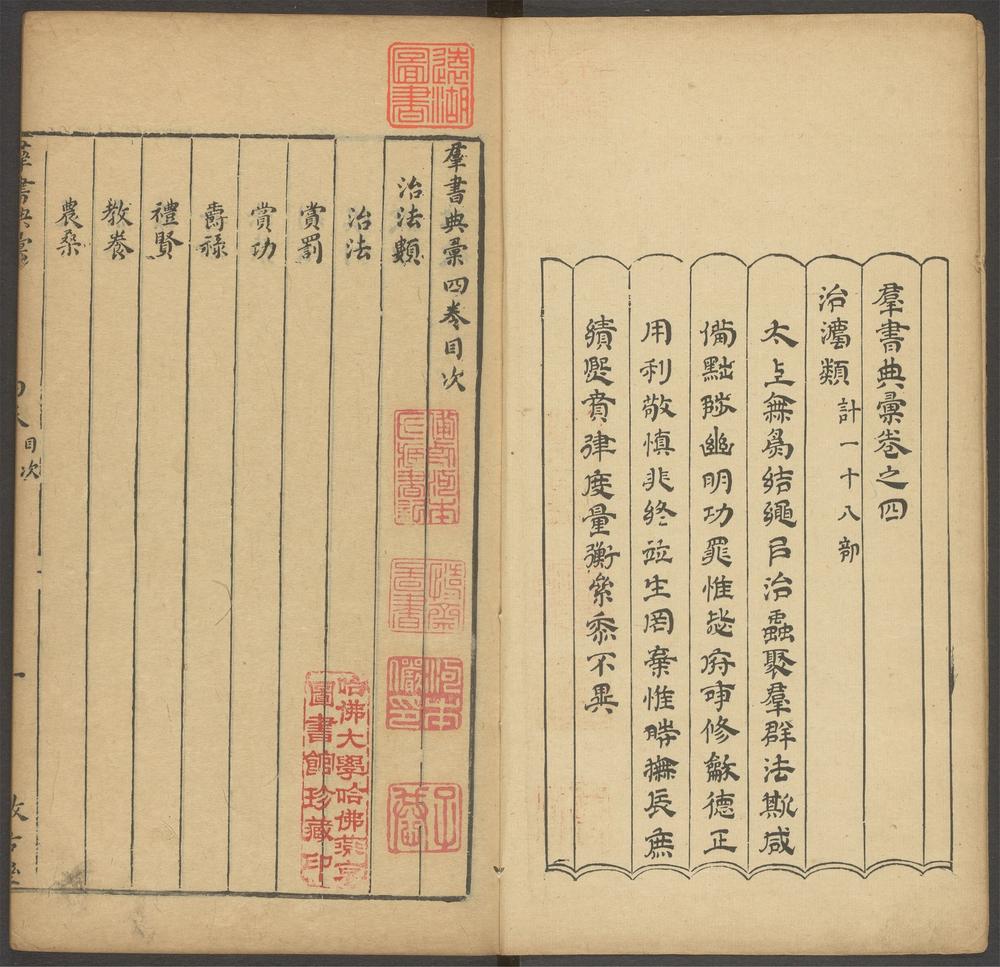 羣書典彙卷之四
治灋類 計一十八部
太上無爲結繩㠯治蟲聚羣群法斯咸
備黜陟幽明功罪惟
修龢德正
用利敬慎非終竝生罔棄惟時撫辰庶
績熙
律度量衡絫黍不異
羣書典彙四卷目次
治法類
治法
賞罰
賞功
爵祿
禮賢
教養
農桑
羣書典彙
四卷 目次
一
遠湖圖書
哈佛大學哈佛燕京圖書館珍藏印